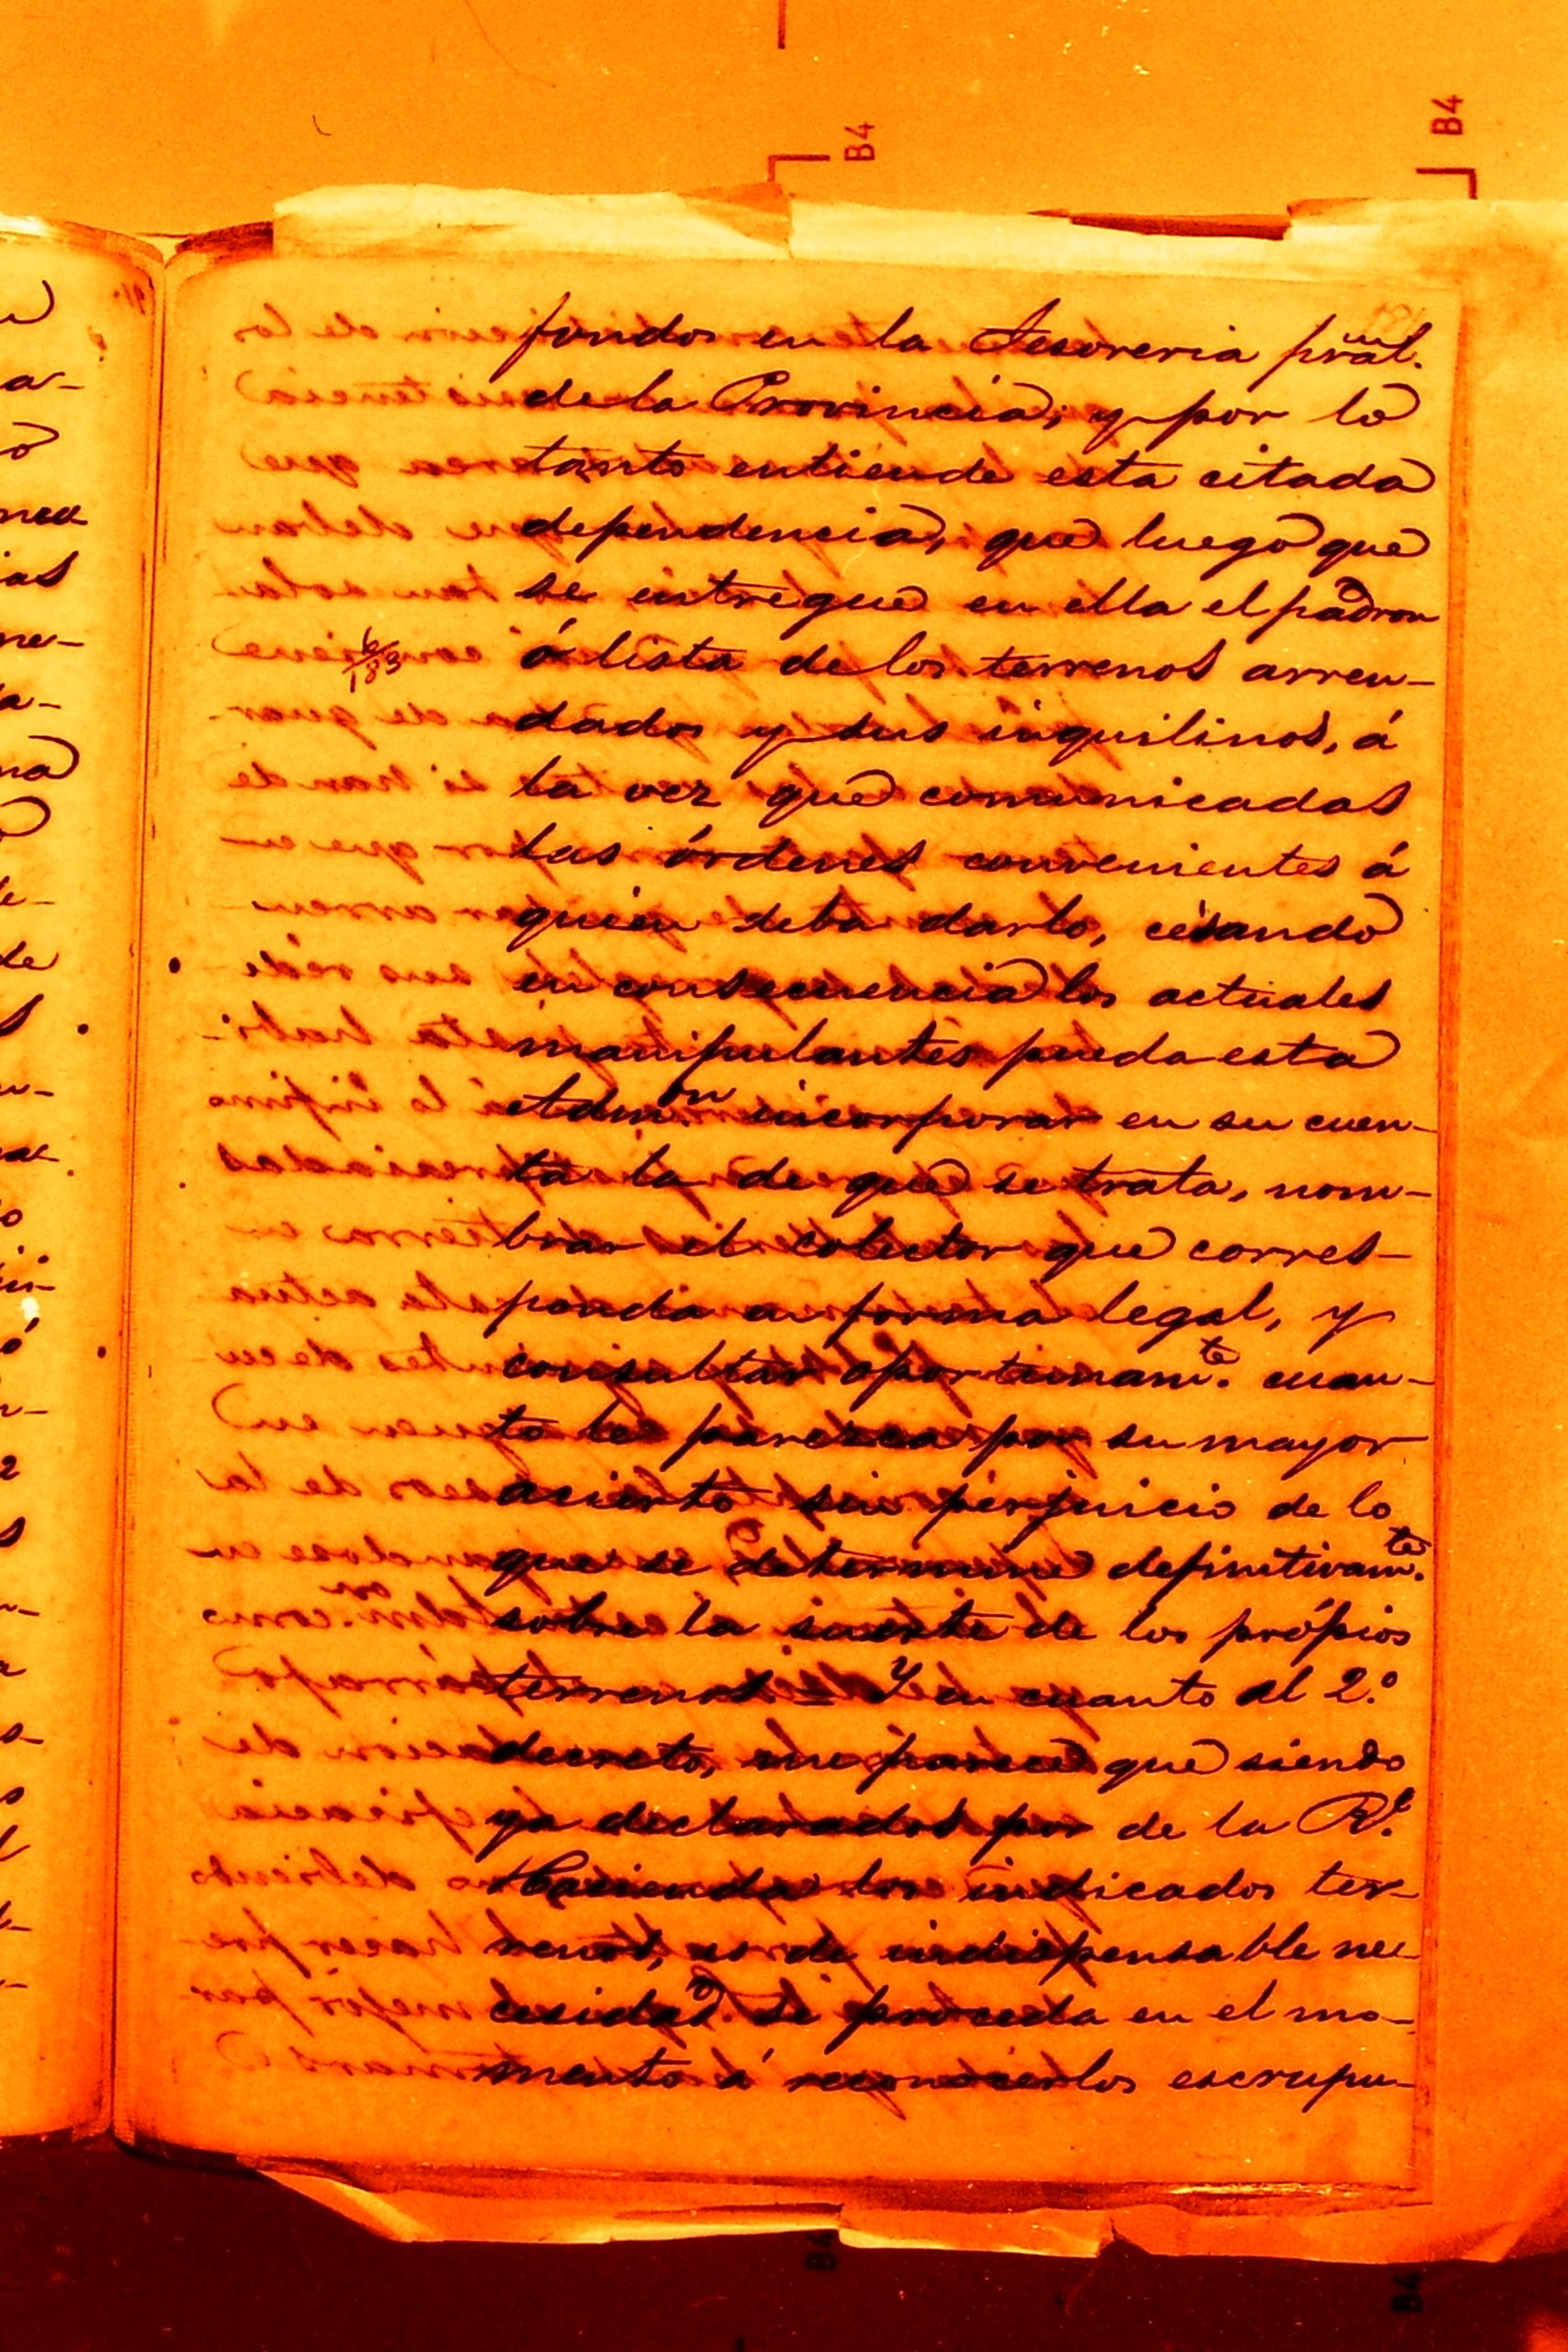 B4
B4
fondos en la Tesoreria pral.
de la Provincia; y por lo
tanto entiende esta citada
dependencia, que luego que
se entregue en ella el padron
ó lista de los terrenos arren-
dados y sus inquilinos, á
la vez que comunicadas
las órdenes convenientes á
quien deba darlo, cesando
en consecuencia los actuales
manipulantes pueda esta
Admon incorporar en su cuen-
ta la de que se trata, nom-
brar el colector que corres-
ponda en forma legal, y
consultar oportunamte. cuan-
to le parezca por su mayor
acierto sin perjuicio de lo
que se determine definitivamte.
sobre la suerte de los própios
terrenos = Y en cuanto al 2.º
decreto, me parece que siendo
ya declarados por de la Rl.
Hacienda los indicados ter-
renos, es de indispensable ne-
cesidad se proceda en el mo-
mento á reconocerlos escrupu-
6/183
B4
B4